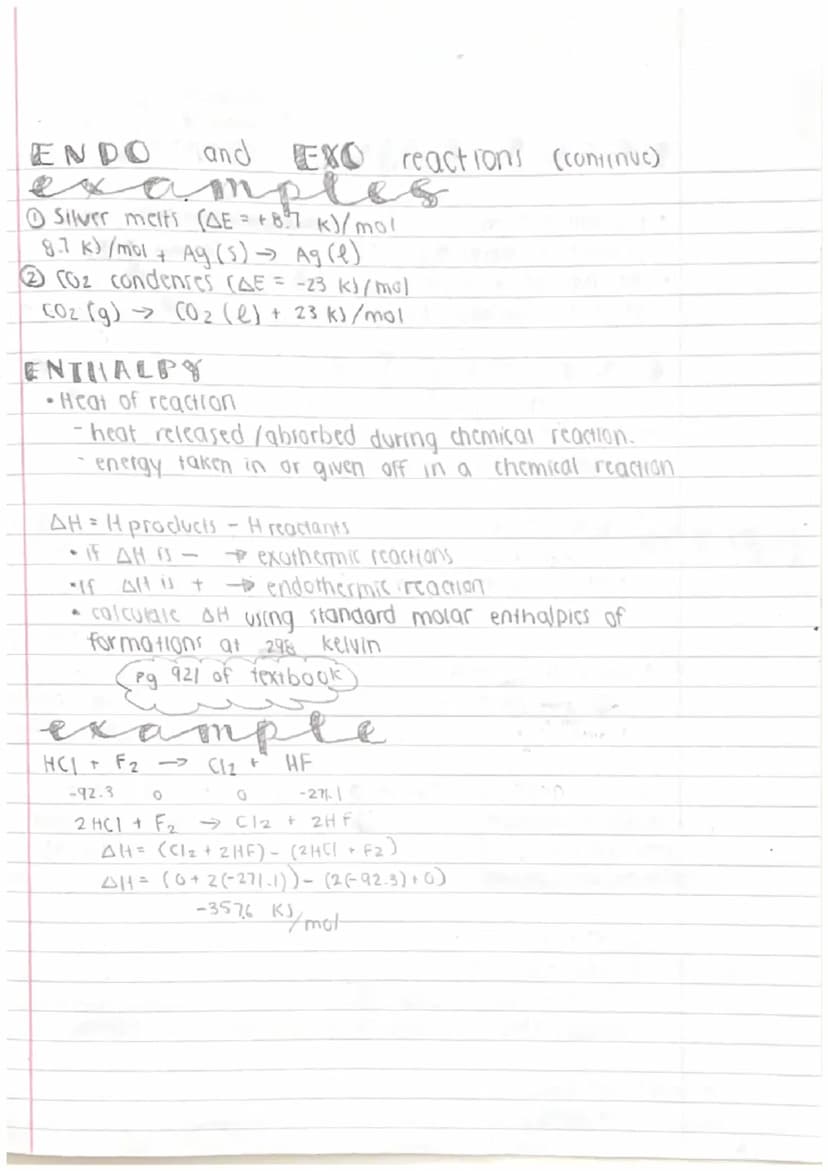 ENDO and EXO reactions (continue)
examples
① Silver melts (ΔE = +8.7 kJ/mol
8.7 kJ/mol + Ag(s) → Ag(l)
② CO2 condenses (ΔE = -23 kJ/mol
CO2(g) → CO2(l) + 23 kJ/mol
ENTHALPY
• Heat of reaction
- heat released/absorbed during chemical reaction.
- energy taken in or given off in a chemical reaction
ΔH = H products - H reactants
• if ΔH is - → exothermic reactions
• If ΔH is + → endothermic reaction
• calculate ΔH using standard molar enthalpies of
formations at 298 kelvin
pg 921 of textbook
example
HCl + F2 → Cl2 + HF
-92.3 0 0 -271.1
2HCl + F2 → Cl2 + 2HF
ΔH = (Cl2 + 2HF) - (2HCl + F2)
ΔH = (0 + 2(-271.1)) - (2(-92.3) + 0)
-357.6 KJ/mol